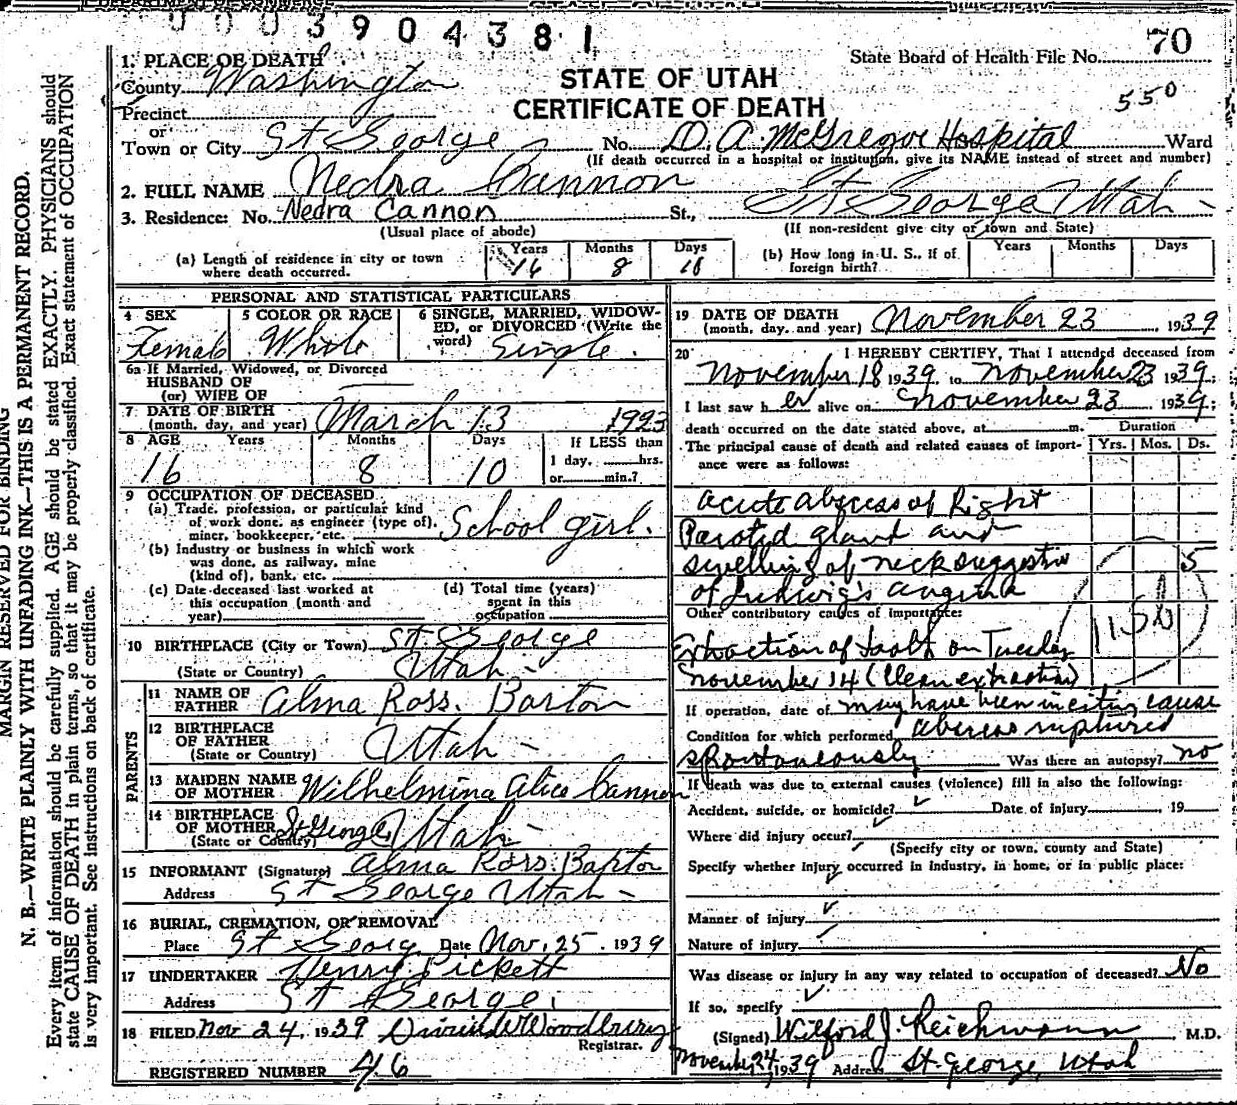 0003904381
70
State Board of Health File No.
550
STATE OF UTAH
CERTIFICATE OF DEATH
1. PLACE OF DEATH
County Washington
Precinct
or
Town or City St George No. D. A. McGregor Hospital Ward
(If death occurred in a hospital or institution, give its NAME instead of street and number)
2. FULL NAME Nedra Cannon
3. Residence: No. Nedra Cannon St., St George Utah
(Usual place of abode) (If non-resident give city or town and State)
(a) Length of residence in city or town where death occurred. Years 16 Months 8 Days 10
(b) How long in U. S., if of foreign birth? Years Months Days
PERSONAL AND STATISTICAL PARTICULARS
4 SEX Female
5 COLOR OR RACE White
6 SINGLE, MARRIED, WIDOWED, or DIVORCED (Write the word) Single.
6a If Married, Widowed, or Divorced
HUSBAND OF
(or) WIFE OF
7 DATE OF BIRTH
(month, day, and year) March 13 1923
8 AGE Years 16 Months 8 Days 10 If LESS than 1 day, hrs. or min.?
9 OCCUPATION OF DECEASED
(a) Trade, profession, or particular kind of work done, as engineer (type of), miner, bookkeeper, etc. School girl.
(b) Industry or business in which work was done, as railway, mine (kind of), bank, etc.
(c) Date deceased last worked at this occupation (month and year)
(d) Total time (years) spent in this occupation
10 BIRTHPLACE (City or Town) St George
(State or Country) Utah
PARENTS
11 NAME OF FATHER Alma Ross. Barton
12 BIRTHPLACE OF FATHER
(State or Country) Utah
13 MAIDEN NAME OF MOTHER Wilhelmina Alice Cannon
14 BIRTHPLACE OF MOTHER
(State or Country) St George, Utah
15 INFORMANT (Signature) Alma Ross. Barton
Address St George Utah
16 BURIAL, CREMATION, OR REMOVAL
Place St Georg Date Nov. 25. 1939
17 UNDERTAKER Henry Pickett
Address St George.
18 FILED Nov 24, 1939 Woodbury
Registrar.
REGISTERED NUMBER 46
19 DATE OF DEATH
(month, day, and year) November 23, 1939
20 I HEREBY CERTIFY, That I attended deceased from
November 18 1939, to November 23 1939;
I last saw her alive on November 23, 1939;
death occurred on the date stated above, at m. Duration
The principal cause of death and related causes of importance were as follows: Yrs. Mos. Ds.
acute abscess of Right
Parotid gland and
swelling of neck suggestive 5
of Ludwig's angina
Other contributory causes of importance:
115b
Extraction of tooth on Tuesday
November 14 (Clean extraction)
If operation, date of may have been inciting cause
Condition for which performed abscess ruptured
spontaneously Was there an autopsy? no
If death was due to external causes (violence) fill in also the following:
Accident, suicide, or homicide? Date of injury 19
Where did injury occur?
(Specify city or town, county and State)
Specify whether injury occurred in industry, in home, or in public place:
Manner of injury
Nature of injury
Was disease or injury in any way related to occupation of deceased? No
If so, specify
(Signed) Wilford J. Reichmann M.D.
November 24, 1939 Address St. George, Utah
MARGIN RESERVED FOR BINDING
N. B.—WRITE PLAINLY WITH UNFADING INK—THIS IS A PERMANENT RECORD.
Every item of information should be carefully supplied. AGE should be stated EXACTLY. PHYSICIANS should
state CAUSE OF DEATH in plain terms, so that it may be properly classified. Exact statement of OCCUPATION
is very important. See instructions on back of certificate.